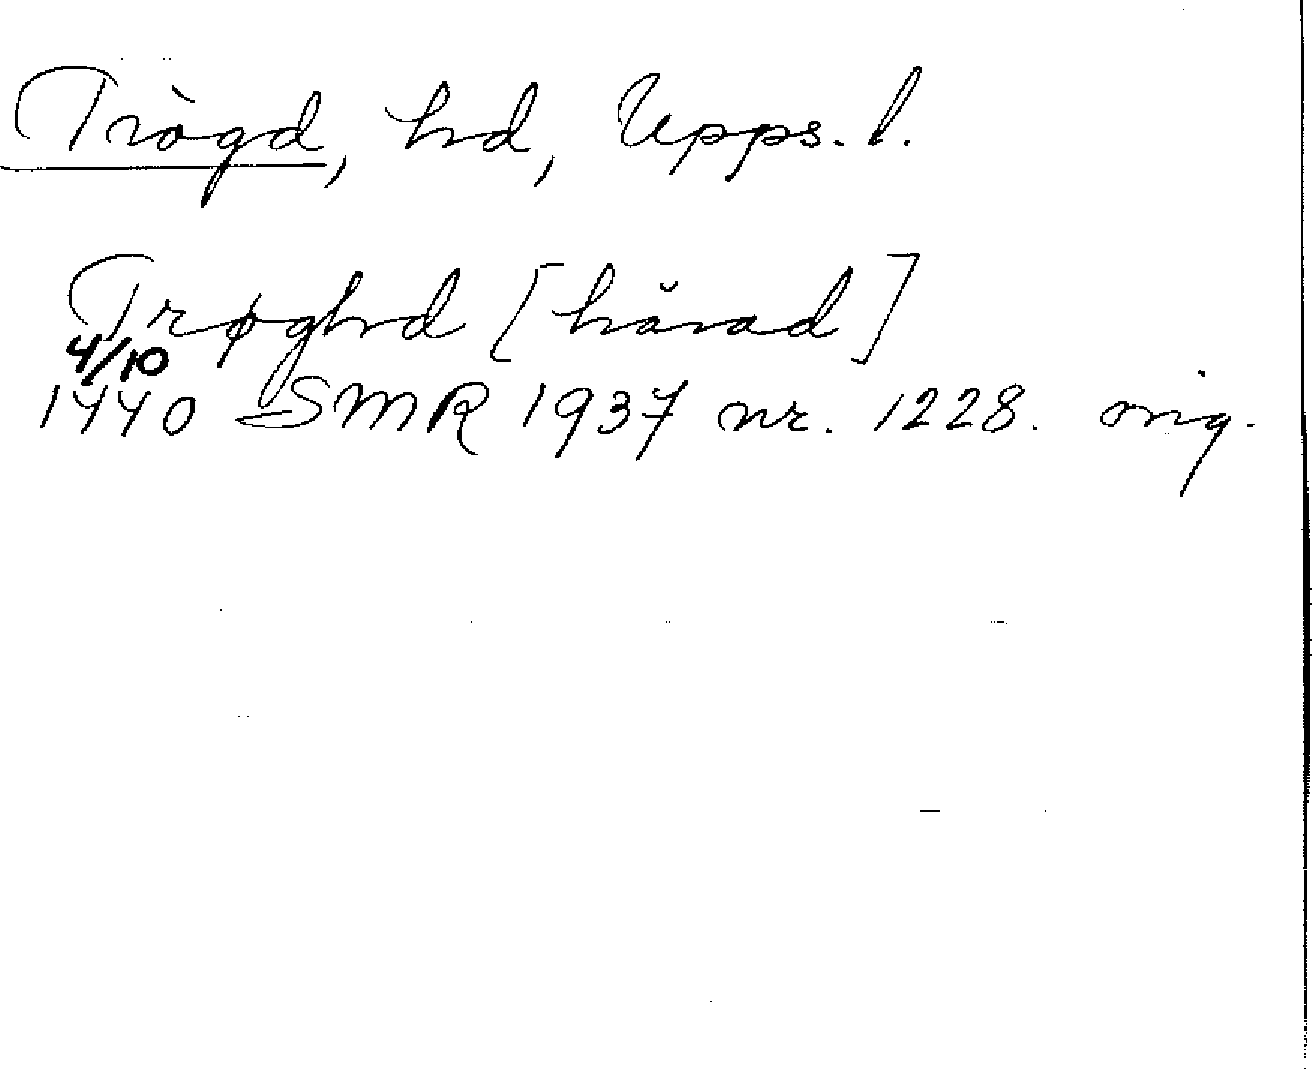 Trögd, hd, Upps. l.
Trøghd [härad]
4/10
1440 SMR 1937 nr. 1228. orig.